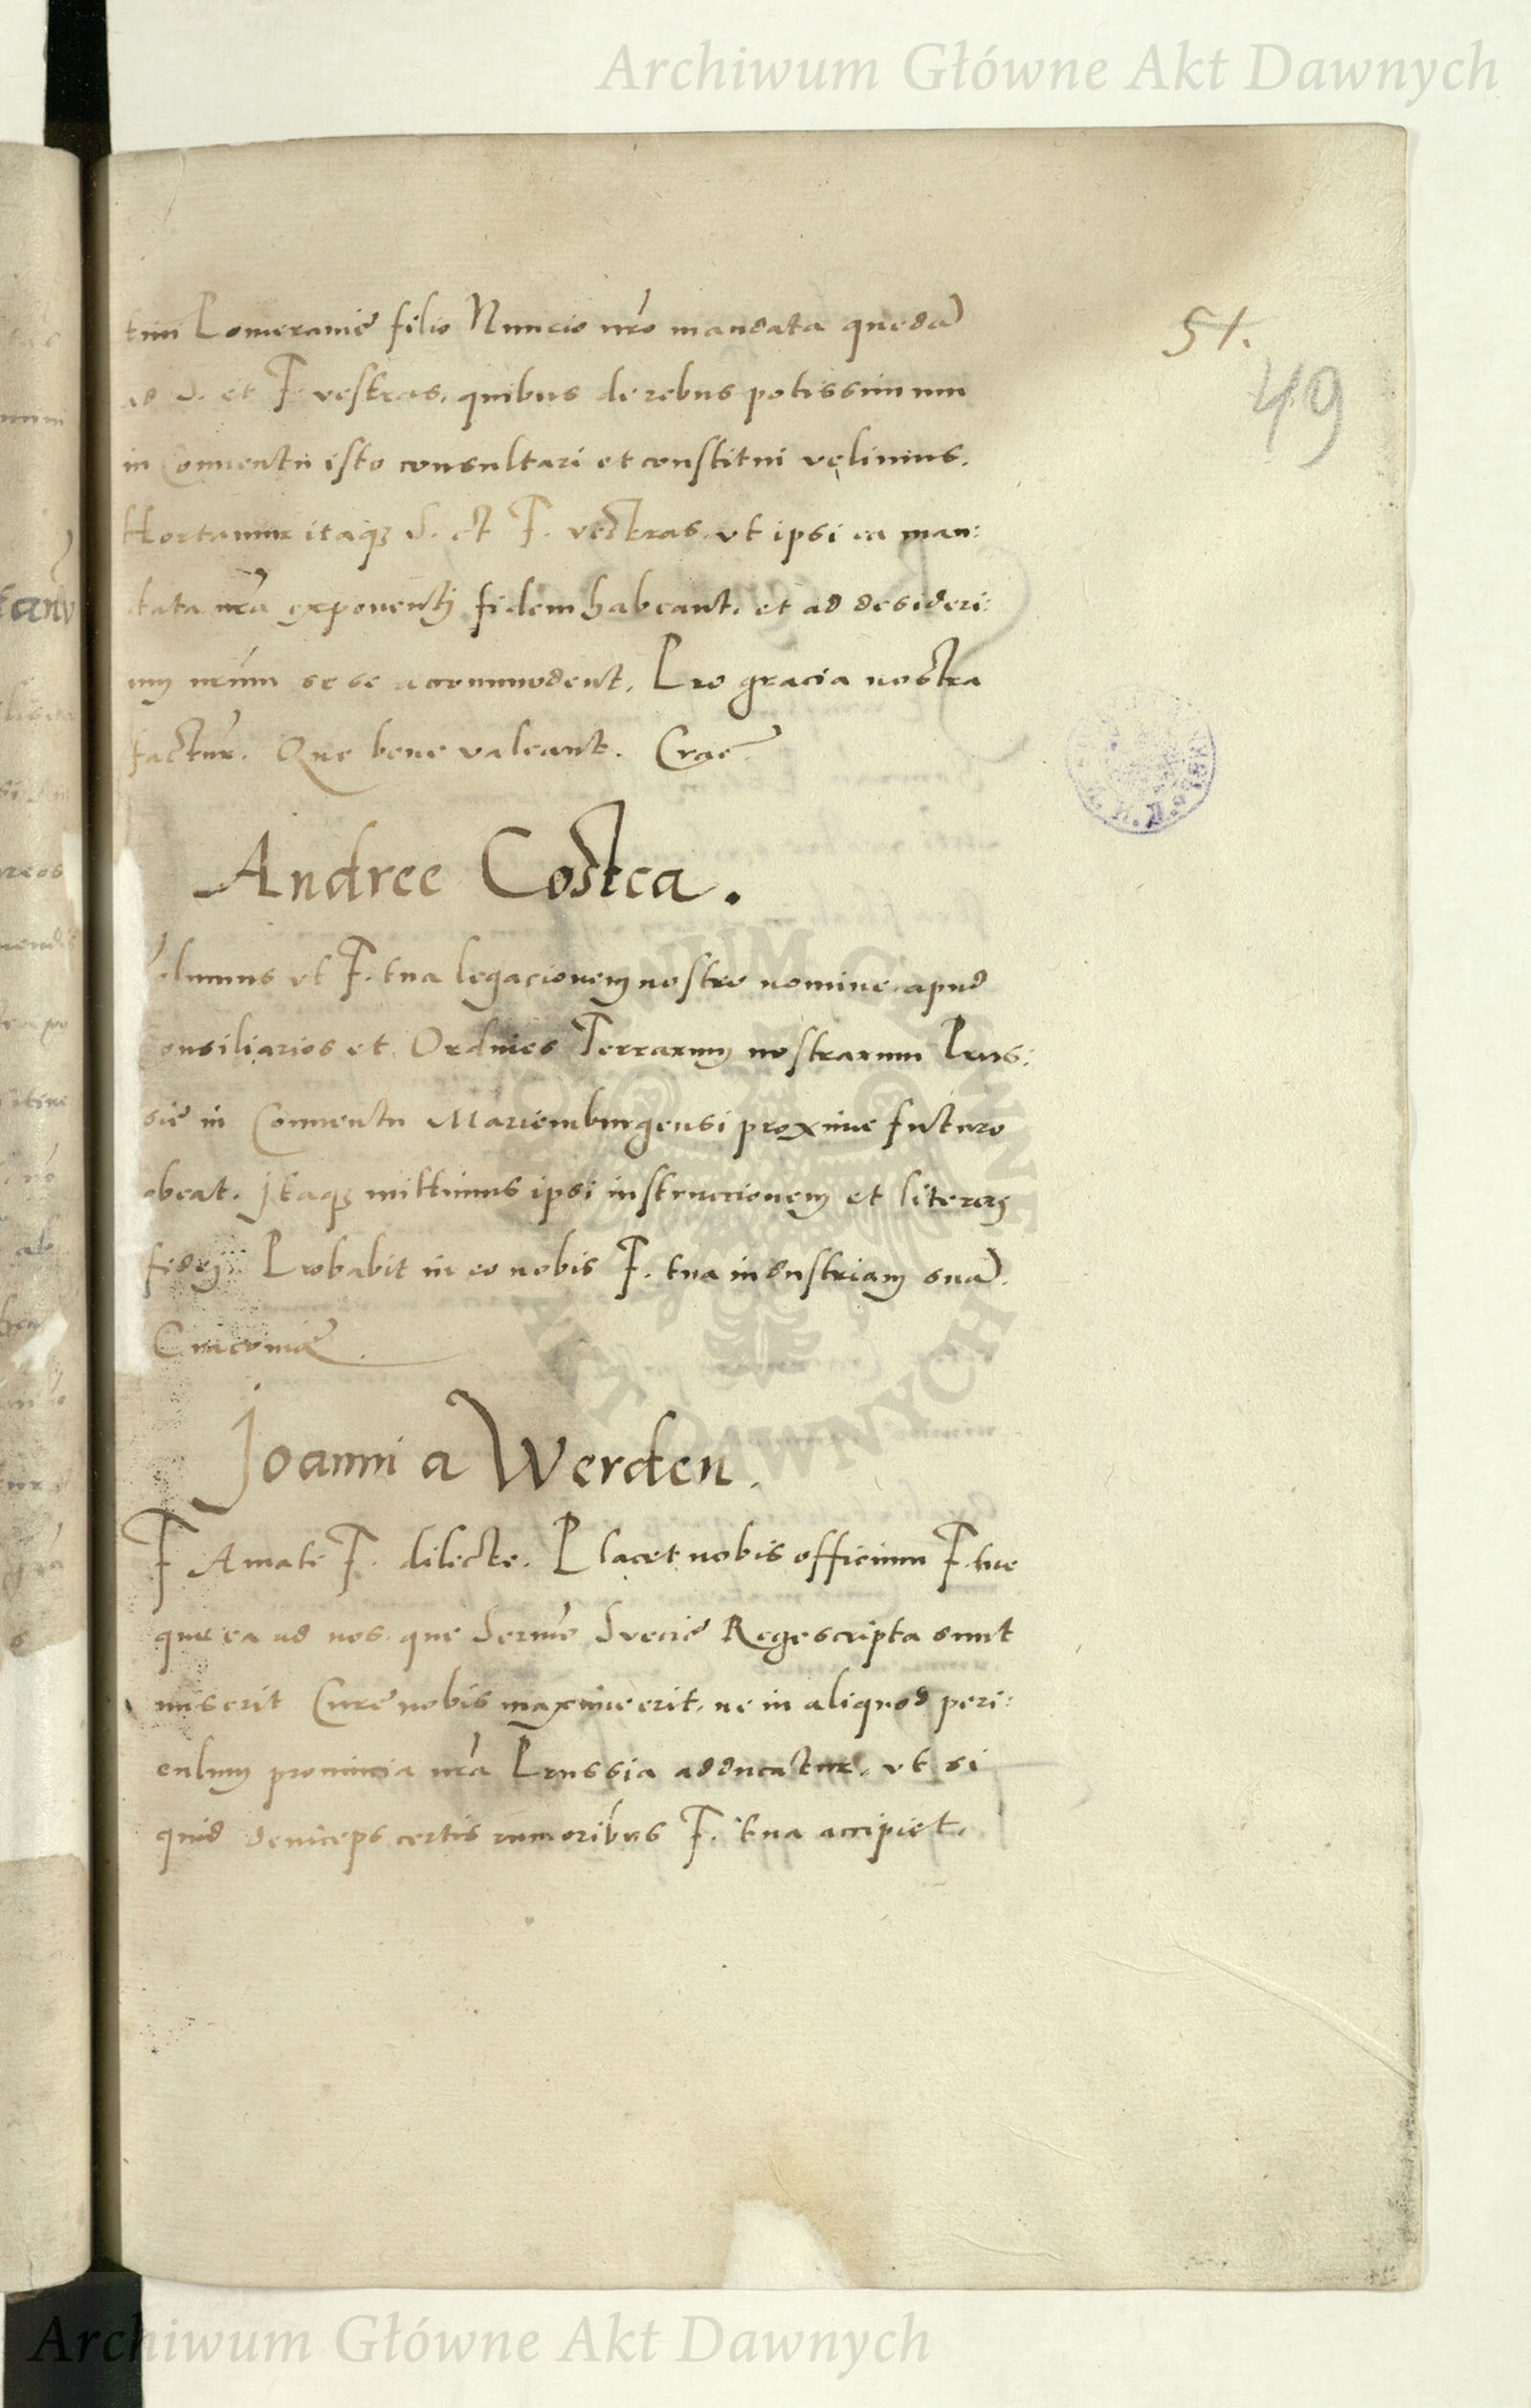 Archiwum Główne Akt Dawnych
tini Pomeranie filio Nuncio nro mandata queda
51.
49
ad S. et F. vestras, quibus de rebus potissimum
in Conuentu isto consultari et constitui velimus.
Hortamur itaq; S. et F. vestras, vt ipsi ea man:
data nra exponenti fidem habeant, et ad desideri:
um nrum sese accommodent, Pro gracia nostra
factur. Que bene valeant. Crac
Andree Costca.
Volumus vt F. tua legacionem nostro nomine apud
Consiliarios et Ordines Terrarum nostrarum Prus:
sie in Conuentu Mariemburgensi proxime futuro
obeat. Itaq; mittimus ipsi instruccionem et literas
fidei. Probabit in eo nobis F. tua industriam sua.
Cracouie
Joanni a Werden.
F Amate F. dilecte. Placet nobis officium F. tue
que ea ad nos, que Sermo Svecie Rege scripta sunt
miserit Cure nobis maxime erit, ne in aliquod peri:
culum prouincia nra Prussia adducatur, vt si
quid deniceps certis rumoribus F. tua accipiet,
ARCHIWUM GŁÓWNE AKT DAWNYCH
Archiwum Główne Akt Dawnych